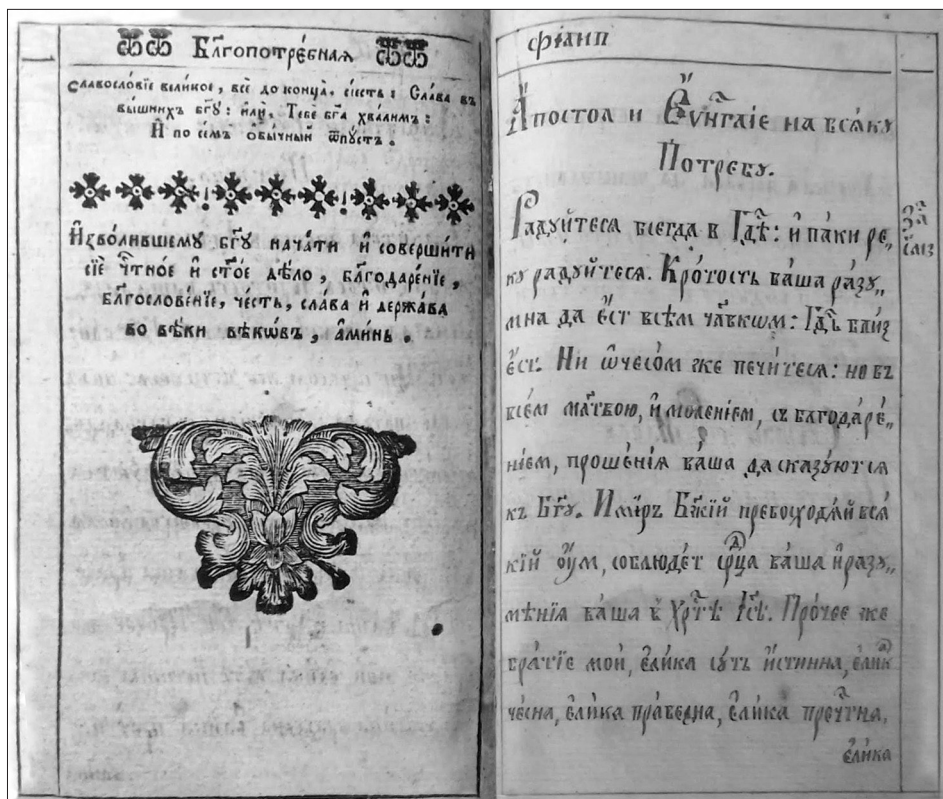 Бл҃гопотре́бная
славосло́вїе вели́кое, все́ до конца̀. сі́есть: Сла́ва въ
вы́шнихъ бг҃у: и҆лѝ, Тебѐ бг҃а хва́лимъ:
И҆ по се́мъ ѡ҆бы́чный ѿпу́стъ.
И҆зво́лившему бг҃у нача́ти и҆ соверши́ти
сїѐ чⷭ҇тно́е и҆ ст҃о́е дѣ́ло, бл҃годаре́нїе,
бл҃гослове́нїе, че́сть, сла́ва и҆ держа́ва
во вѣ́ки вѣкѡ́въ, а҆ми́нь.
філип
А҆посто́л и Єѵⷢ҇аліе на вся́ку
Потре́бу.
Ра́дуйтеся всегда в Гдⷭ҇ѣ: и҆ па́ки ре„
ку ра́дуйтеся. Кро́тость ва́ша ра́зу„
мна да є҆́ст всѣ́м чл҃вкѡм: Гдⷭ҇ь бли́з
є҆́ст. Ни ѡ҆ чесо́м же пецитеся: но въ
все́м мл҃твою, и҆ моле́ніем, съ благода́ре́„
ніем, проше́нія ва́ша да сказу́ются
къ Бг҃у. И ми́р Бж҃ій превосходя́й вся
кій ѹ҆́м, соблюде́т срⷣца ва́ша и҆ разу„
мѣ́нія ва́ша в Хрⷭ҇тѣ̀ І҆с҃ѣ. Про́чее же
бра́тіе мои́, є҆ли́ка су́ть и҆́стинна, є҆ли́каⷶ
че́сна, є҆ли́ка пра́ведна, є҆ли́ка пречⷭ҇тна,
є҆ли́ка